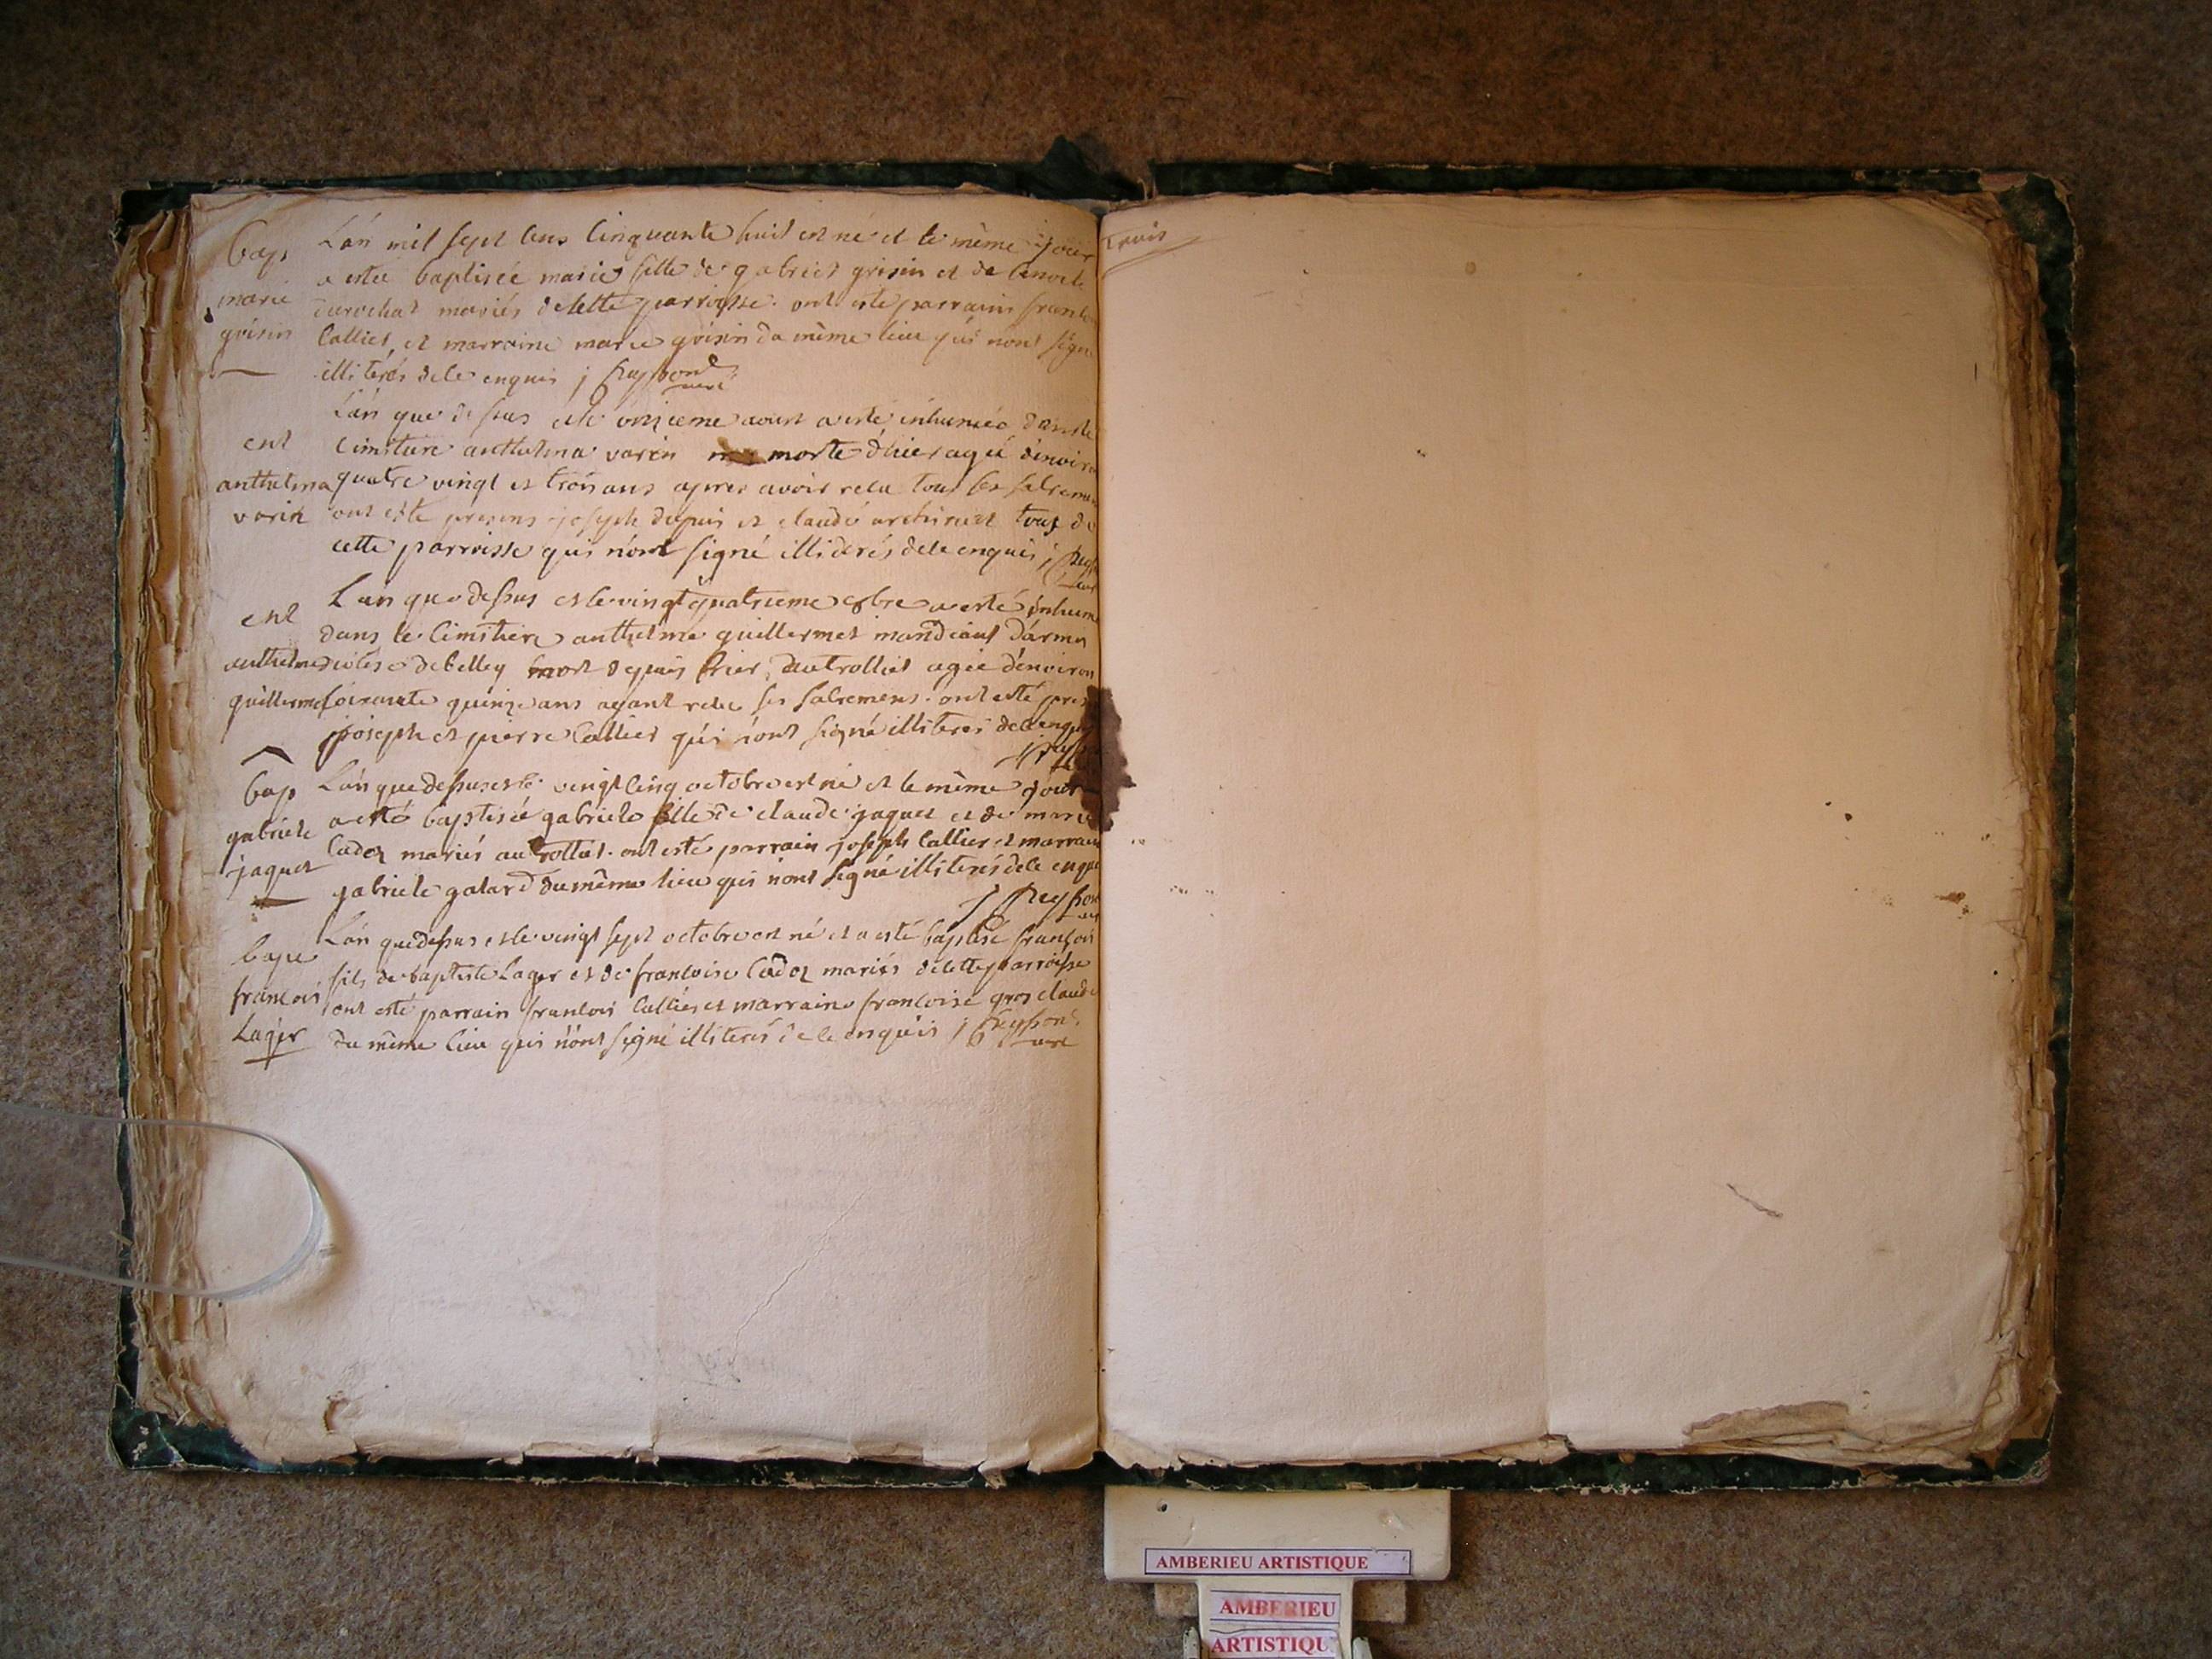 bap
marie
grisin
Lán mil sept cens cinquante huit est né et le même jour
a estée baptisée marie fille de gabriel grisin et de benoite
durochat mariés de cette parroisse. ont este parrain
Callies, et marraine marie grisin du même lieu qui nónt signé
illiterés de ce enquis j Reyssond
curé
ent
anthelma
varin
Lán que dessus et le onzieme aoust a esté inhumée dans le
cimitiere anthelma varin morte d'hier agée dénviron
quatre vingt et trois ans apres avoir recu tous ses sacremens
ont este presens joseph dupuis et claude tous de
cette parroisse qúi nónt signé illiderés de ce enquis j
ent
anthelme
guillermet
Lan que dessus et le vingt quatrieme 8bre a esté inhumé
dans le Cimitiere anthelme guillermet mandiant
diocese de belley mort depuis hier, au trolliet agée dénviron
soixante quinze ans ayant recu ses sacremens. ont esté
joseph et pierre Callies qúi nónt signé illiterés de ce enquis
bap
gabriele
jaquet
Lán que dessus et le vingt cinq octobre est né et le même jour
a esté baptisée gabriele fille de claude jaquet et de marie
Cadoz mariés au trolliet. ont esté parrain joseph Callies et marraine
gabriele galard du même lieu qui nónt signé illiterés de ce enquis
j Reyssond
bape
francois
Lager
Lán que dessus et le vingt sept octobre est né et a esté baptisé françois
fils de baptiste Lager et de francoise Cadoz mariés de cette parroisse
ont esté parrain francois Callies et marraine francoise gros claude
du même lieu qui nónt signé illiterés de ce enquis j Reyssond
curé
AMBERIEU ARTISTIQUE
AMBERIEU
ARTISTIQU